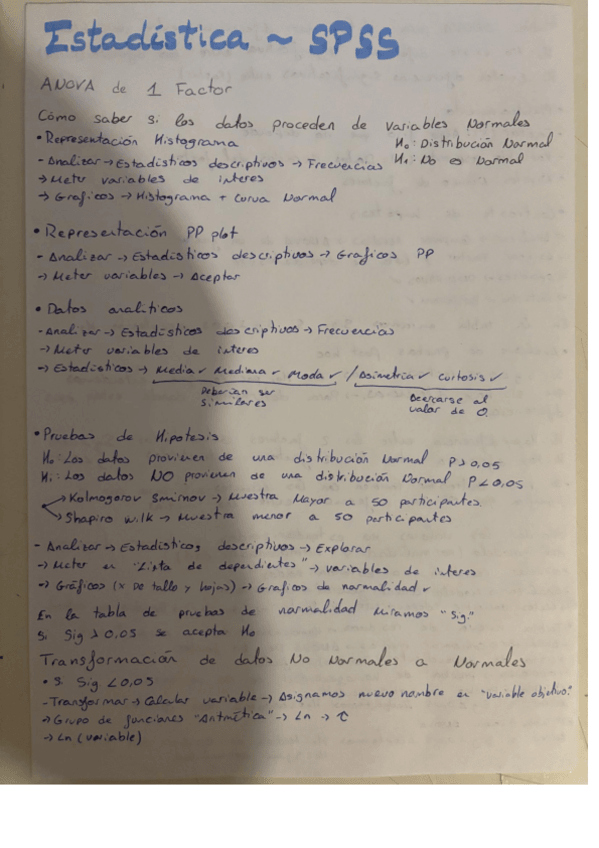 Estadística ~ SPSS
ANOVA de 1 Factor
Cómo saber si los datos proceden de variables Normales
• Representación Histograma H₀: Distribución Normal
- Analizar → Estadísticos descriptivos → Frecuencias H₁: No es Normal
→ Meter variables de interes
→ Graficos → Histograma + Curva Normal
• Representación PP plot
- Analizar → Estadisticos descriptivos → Graficos PP
→ Meter variables → Aceptar
• Datos analiticos
- Analizar → Estadísticos descriptivos → Frecuencias
→ Meter variables de interes
→ Estadísticos → Media ✓ Mediana ✓ Moda ✓ / Asimetria ✓ Curtosis ✓
Deberian ser Acercarse al
similares valor de 0.
• Pruebas de Hipotesis
H₀: Los datos provienen de una distribución Normal P > 0,05
H₁: Los datos NO provienen de una distribución Normal P < 0,05
→ Kolmogorov Smirnov → Muestra Mayor a 50 participantes.
→ Shapiro Wilk → Muestra menor a 50 participantes
- Analizar → Estadísticos descriptivos → Explorar
→ Meter en "Lista de dependientes" → variables de interes
→ Gráficos (x De tallo y hojas) → Graficos de normalidad ✓
En la tabla de pruebas de normalidad miramos "Sig."
Si Sig > 0,05 se acepta H₀
Transformación de datos No Normales a Normales
• Si Sig < 0,05
- Transformar → Calcular variable → Asignamos nuevo nombre en "variable objetivo."
→ Grupo de funciones "Aritmética" → Ln → ↑
→ Ln (variable)